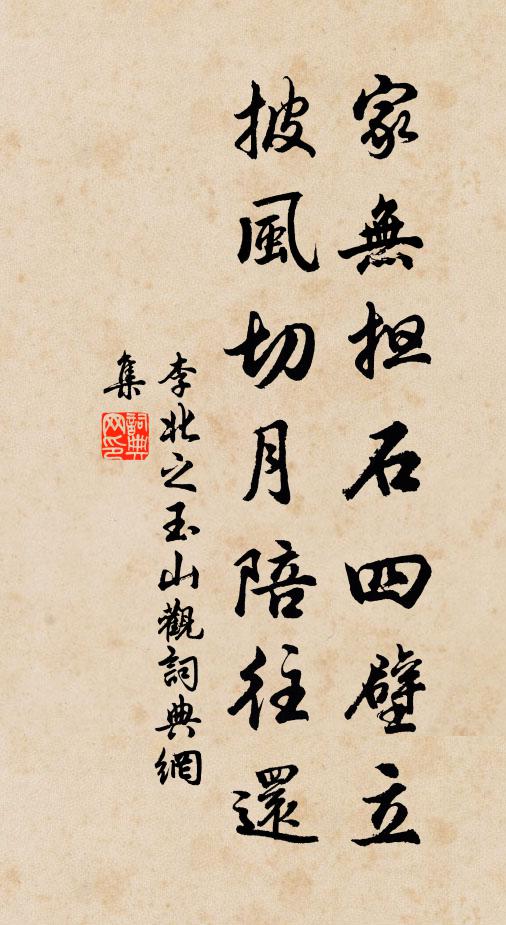 家無担石四壁立
披風切月陪往還
李兆之玉山觀詞典網
集
詞典網印